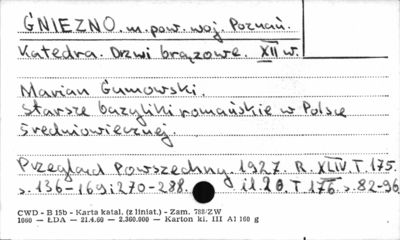 GNIEZNO. m. pow. woj. Poznań.
Katedra. Drzwi brązowe. XII w.
Marian Gumowski.
Starsze bazyliki romańskie w Polsce
średniowiecznej.
Przegląd Powszechny. 1927. R. XLIV T. 175.
s. 136-169 i 270-288. il. 20. T 176. s. 82-96
CWD - B 15b - Karta katal. (z liniat.) - Zam. 788/ZW
1060 — ŁDA — 21.4.60 — 2.360.000 — Karton kl. III A1 160 g